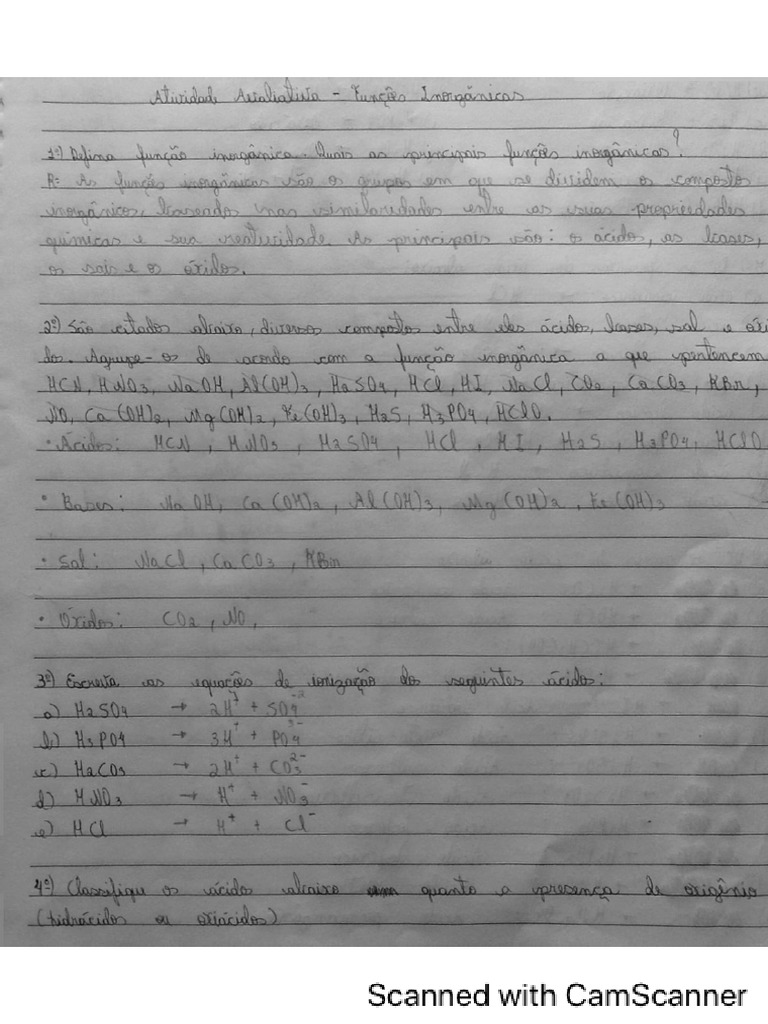 Atividade Avaliativa - Funções Inorgânicas
1º) Defina função inorgânica. Quais as principais funções inorgânicas?
R= As funções inorgânicas são os grupos em que se dividem os compostos
inorgânicos, baseados nas similaridades entre as suas propriedades
químicas e sua reatividade. As principais são: os ácidos, as bases,
os sais e os óxidos.
2º) São citados abaixo, diversos compostos entre eles ácidos, bases, sal e óxi
dos. Agrupe-os de acordo com a função inorgânica a que pertencem
HCN, HNO3, NaOH, Al(OH)3, H2SO4, HCl, HI, NaCl, CO2, CaCO3, KBr,
NO, Ca(OH)2, Mg(OH)2, Fe(OH)3, H2S, H3PO4, HClO.
• Ácidos: HCN, HNO3, H2SO4, HCl, HI, H2S, H3PO4, HClO
• Bases: NaOH, Ca(OH)2, Al(OH)3, Mg(OH)2, Fe(OH)3
• Sal: NaCl, CaCO3, KBr
• Óxidos: CO2, NO,
3º) Escreva as equações de ionização dos seguintes ácidos:
a) H2SO4 → 2H+ + SO4-2
b) H3PO4 → 3H+ + PO4 3-
c) H2CO3 → 2H+ + CO3 2-
d) HNO3 → H+ + NO3-
e) HCl → H+ + Cl-
4º) Classifique os ácidos abaixo quanto a presença de oxigênio
(hidrácidos ou oxiácidos)
Scanned with CamScanner